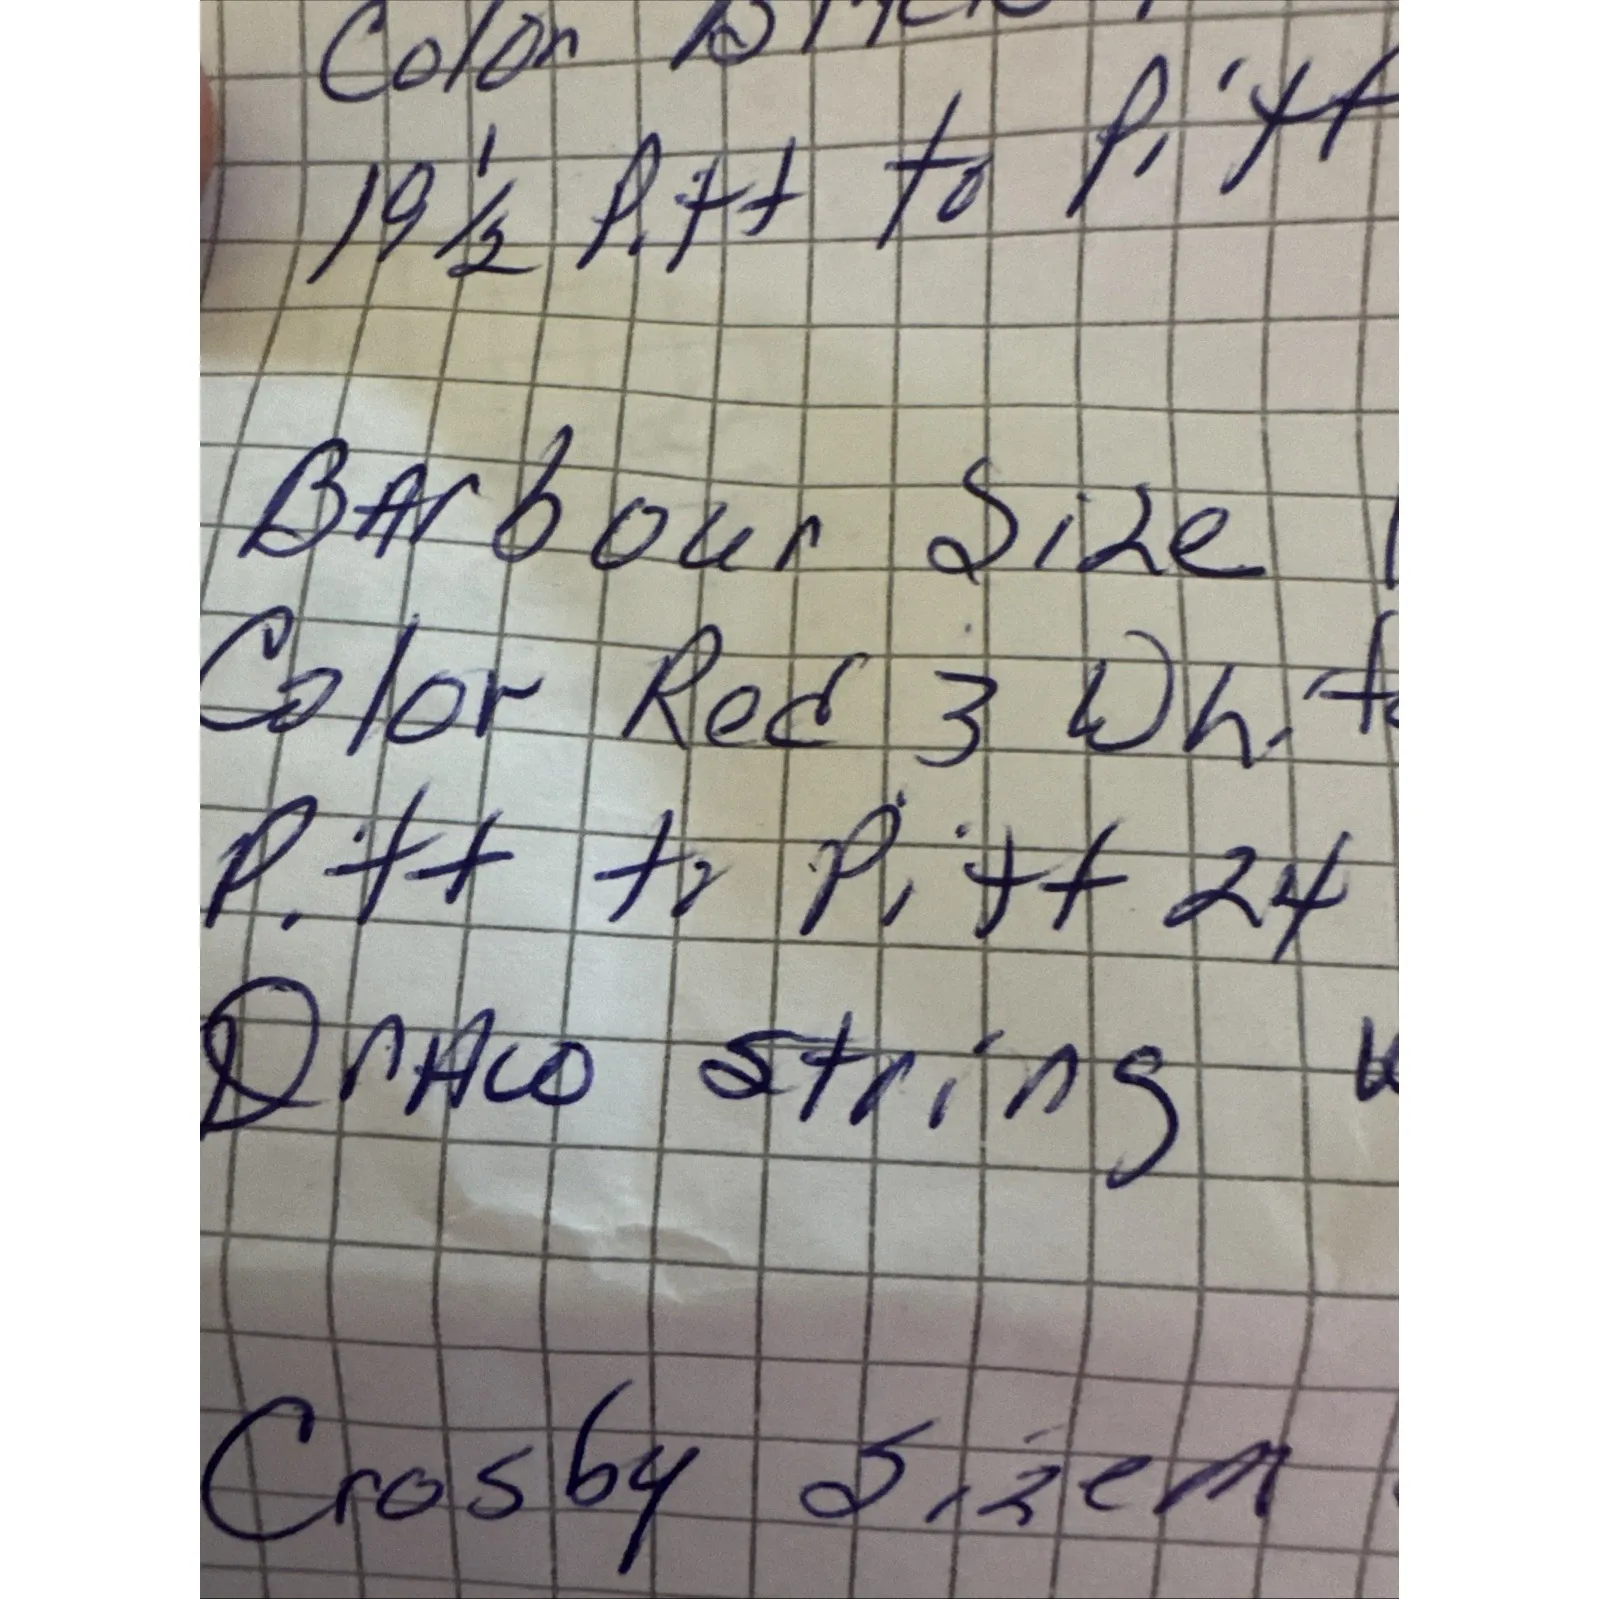 Color Black
19 1/2 Pitt to Pitt
BArbour Size
Color Red 3 White
Pitt to Pitt 24
DrAw string
Crosby Size M